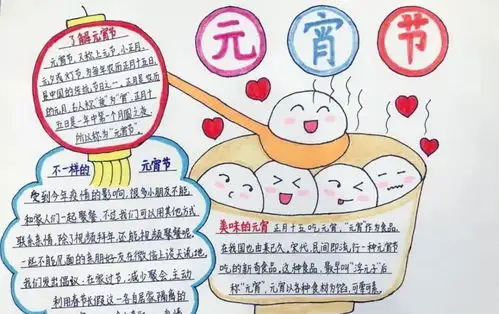 元宵节
了解元宵节
元宵节,又称上元节,小正月,
元夕或灯节,为每年农历正月十五日,
是中国的传统节日之一。正月是农历
的元月,古人称"夜"为"宵",正月十
五日是一年中第一个月圆之夜,
所以称为"元宵节"。
不一样的 元宵节
受到今年疫情的影响,很多小朋友不能
和家人们一起聚餐,不过我们可以用其他方式
联系亲情,除了视频拜年还能视频聚餐呢,
一样不能见面的亲朋好友在微信上谈天说地,
我们发出倡议,在家过节,减少聚会,主动
利用春节假这一各自居家隔离的
美味的元宵 正月十五吃元宵,"元宵"作为食品,
在我国也由来已久。宋代,民间即流行一种元宵节
吃的新奇食品。这种食品,最早叫"浮元子"后
称"元宵",元宵以各种食材为馅,可荤可素。